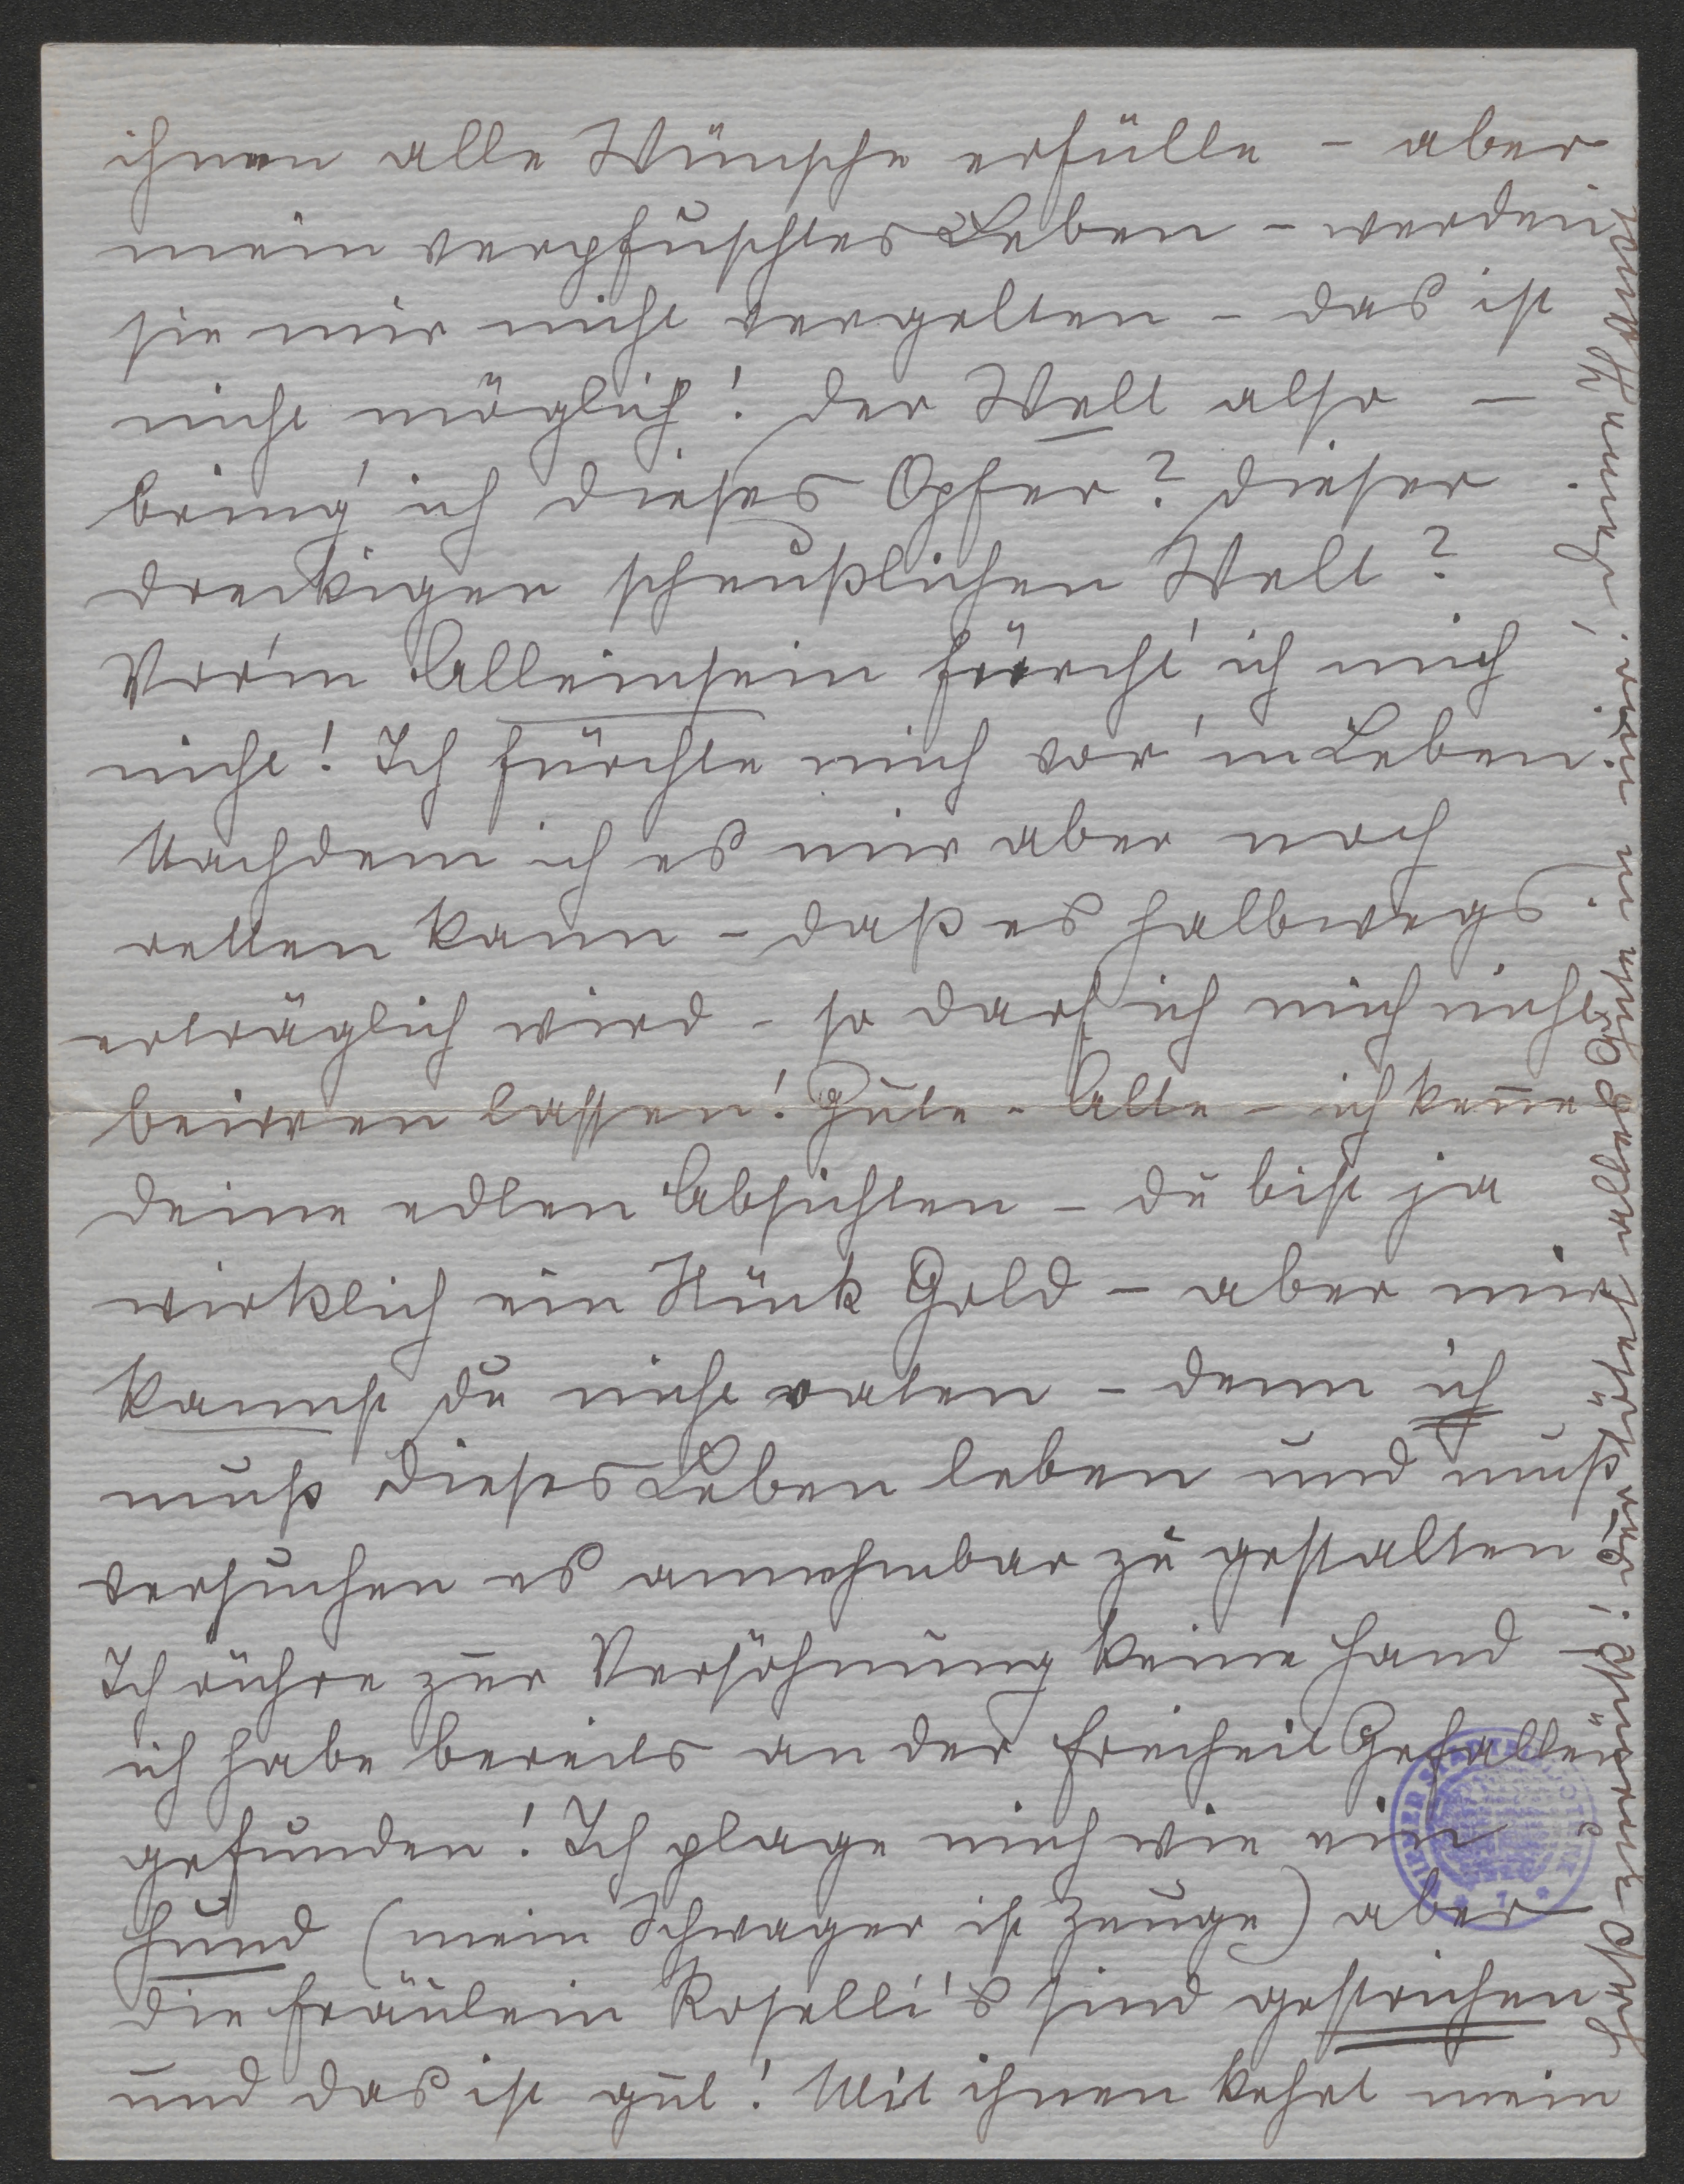 ihnen alle Wünsche erfülle – aber
mein verpfuschtes Leben – werden
sie mir nicht vergelten – das ist
nicht möglich! Der Welt also –
bring' ich dieses Opfer? Dieser
dreckigen scheußlichen Welt?
Vor'm Alleinsein fürcht' ich mich
nicht! Ich fürchte mich vor'm Leben.
Nachdem ich es mir aber noch
retten kann – daß es halbwegs
erträglich wird – so darf ich mich nicht
beirren lassen! Gute – Alte – ich keñe
deine edlen Absichten – du bist ja
wirklich ein Stück Gold – aber mir
kannst du nicht raten – denn ich
muß dieses Leben leben und muß
versuchen es annehmbar zu gestalten
Ich rühre zur Versöhnung keine Hand
ich habe bereits an der Freiheit Gefallen
gefunden! Ich plage mich wie ein
Hund (mein Schwager ist Zeuge) aber
die Fräulein Roselli's sind gestrichen
und das ist gut! Mit ihnen kehrt mein